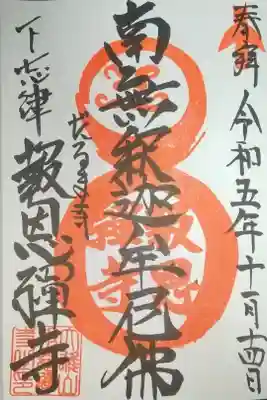 奉拝 令和五年十一月十四日
南無釈迦牟尼佛
だるま寺
下志津 報恩禅寺